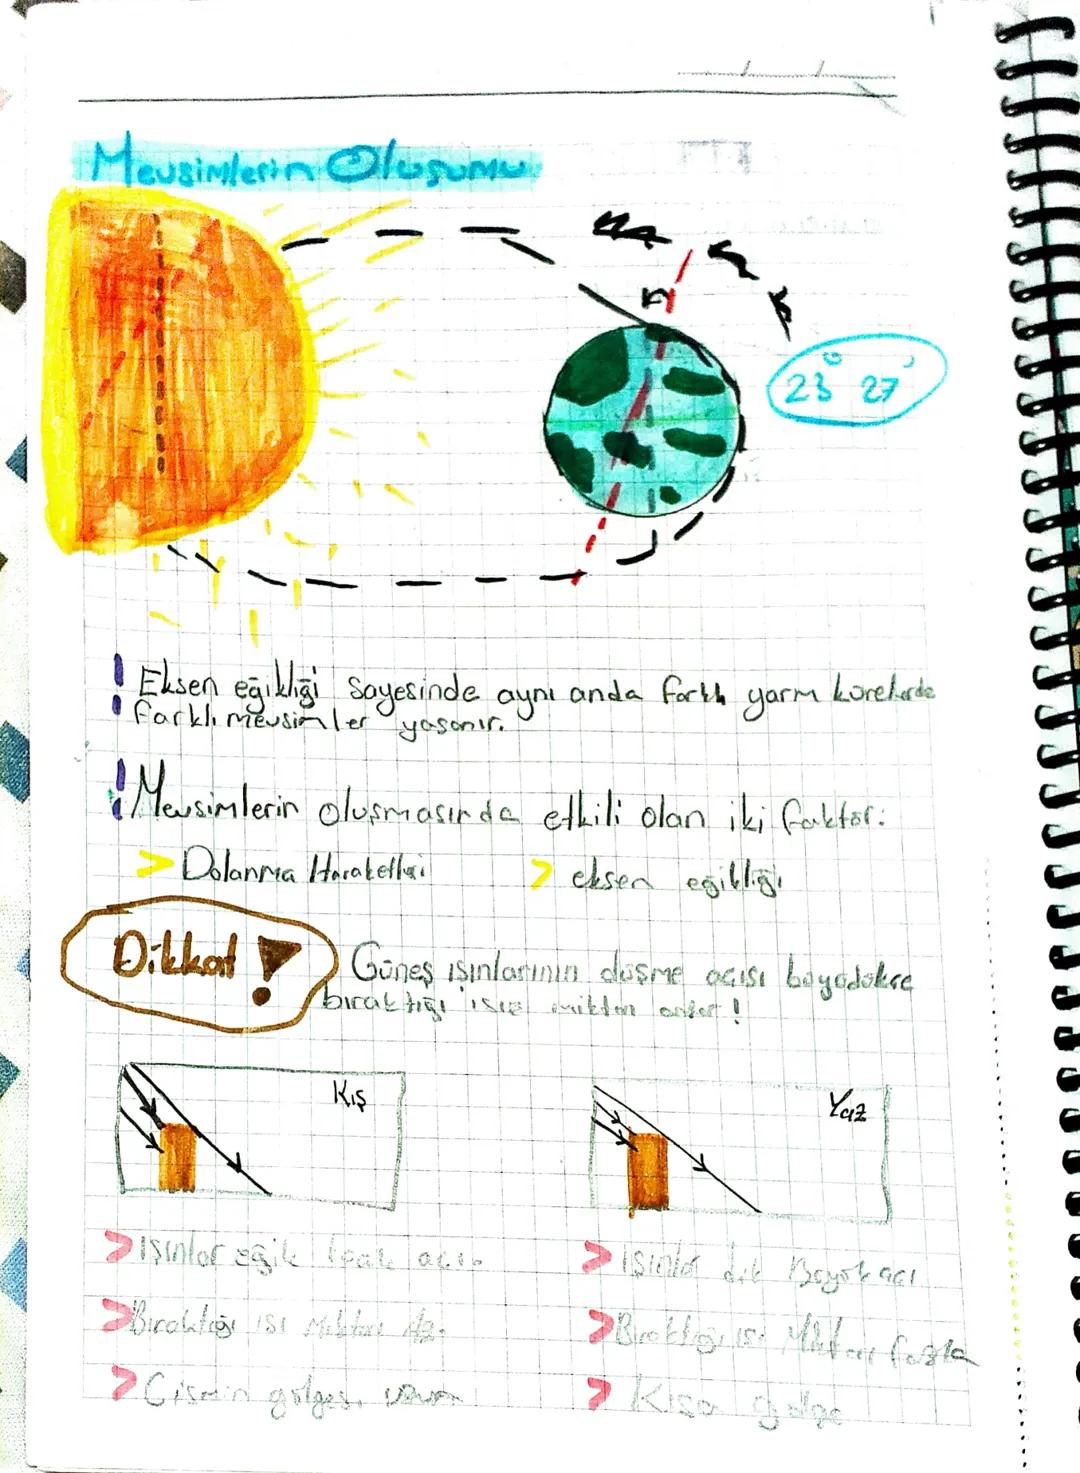 Mevsimlerin Oluşumu
23° 27'
! Eksen eğikliği sayesinde aynı anda farklı yarım kürelerde
farklı mevsimler yaşanır.
! Mevsimlerin oluşmasında etkili olan iki faktör:
> Dolanma Hareketleri > eksen eğikliği
Dikkat ! Güneş ışınlarının düşme açısı
bıraktığı miktarı artar!
Kış Yaz
> Işınlar eğik > Işınlar dik Büyük açı
> Bıraktığı ısı Miktarı Az. > Bıraktığı ısı Miktarı fazla
> Cismin gölgesi uzun > Kısa gölge